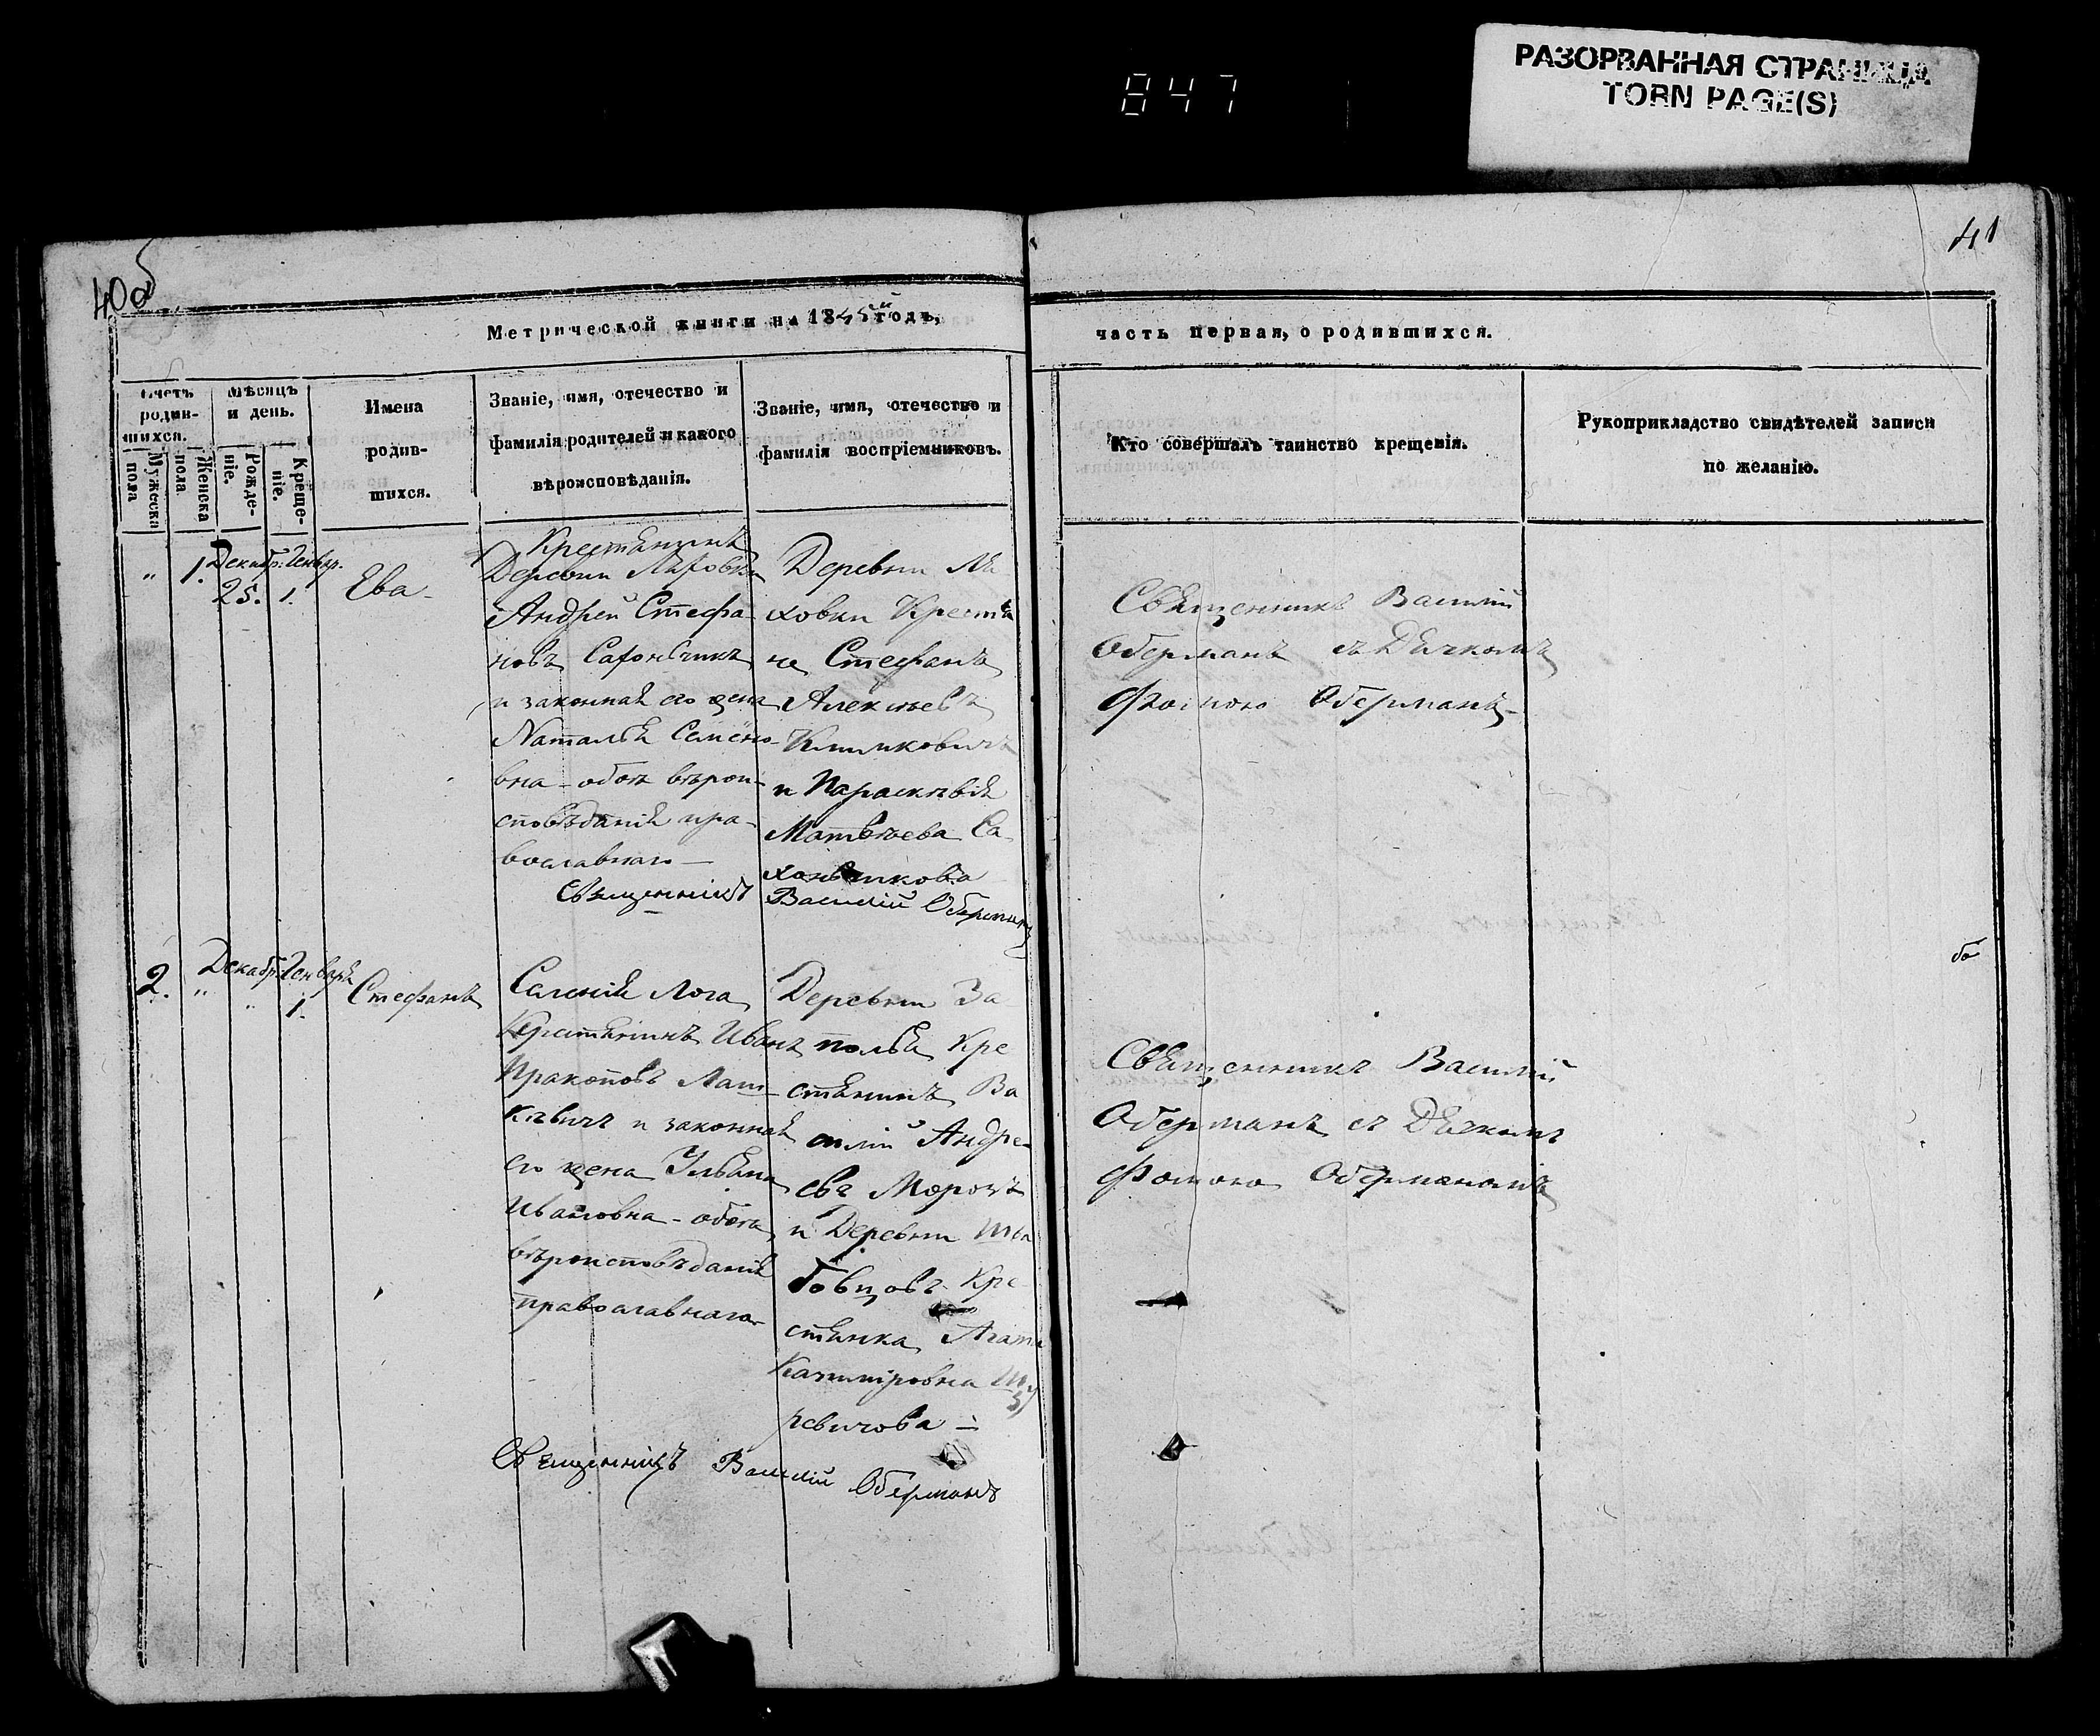 847
РАЗОРВАННАЯ СТРАНИЦА
TORN PAGE(S)
40об
41
Метрической книги на 1845й годъ,
часть первая, о родившихся.
Счетъ родив-шихся.
Мужеска пола
Женска пола
Мѣсяцъ и день.
Рожде-ніе.
Креще-ніе.
Имена
родив-
шихся.
Званіе, имя, отечество и
фамилія родителей и какого
вѣроисповѣданія.
Званіе, имя, отечество и
фамилія воспріемниковъ.
Кто совершалъ таинство крещенія.
Рукоприкладство свидѣтелей записи
по желанію.
" 1. Декабр. 25. Генвар. 1.
Ева
Крестьянинъ
Деревни
Андрей Стефа-
новъ
и законная его жена
Наталья Семено-
вна - обоя вѣрои-
сповѣданія пра-
вославнаго
Деревни Ля
ховки Крестья
не Стефанъ
Алексѣевъ
Климковичъ
и Параскевія
Матвѣева Са
Священникъ Василій Оберманъ
Священникъ Василій
Оберманъ съ Дьячкомъ
Фомою Оберманъ
2. " Декабр. " Генваря 1.
Стефанъ
Селенія Лога
Крестьянинъ Иванъ
Пракоповъ Лаш-
кевичъ и законная
его жена Ульяна
Ивановна - обоя
вѣроисповѣданія
православнаго
Деревни За
полья Кре
стьянинъ Ва
силій Андре-
евъ Морозъ
и Деревни
бовцовъ Кре
стьянка Агата
Казимировна
ревичова
Священникъ Василій Оберманъ
Священникъ Василій
Оберманъ съ Дьячкомъ
Фомою Оберманомъ